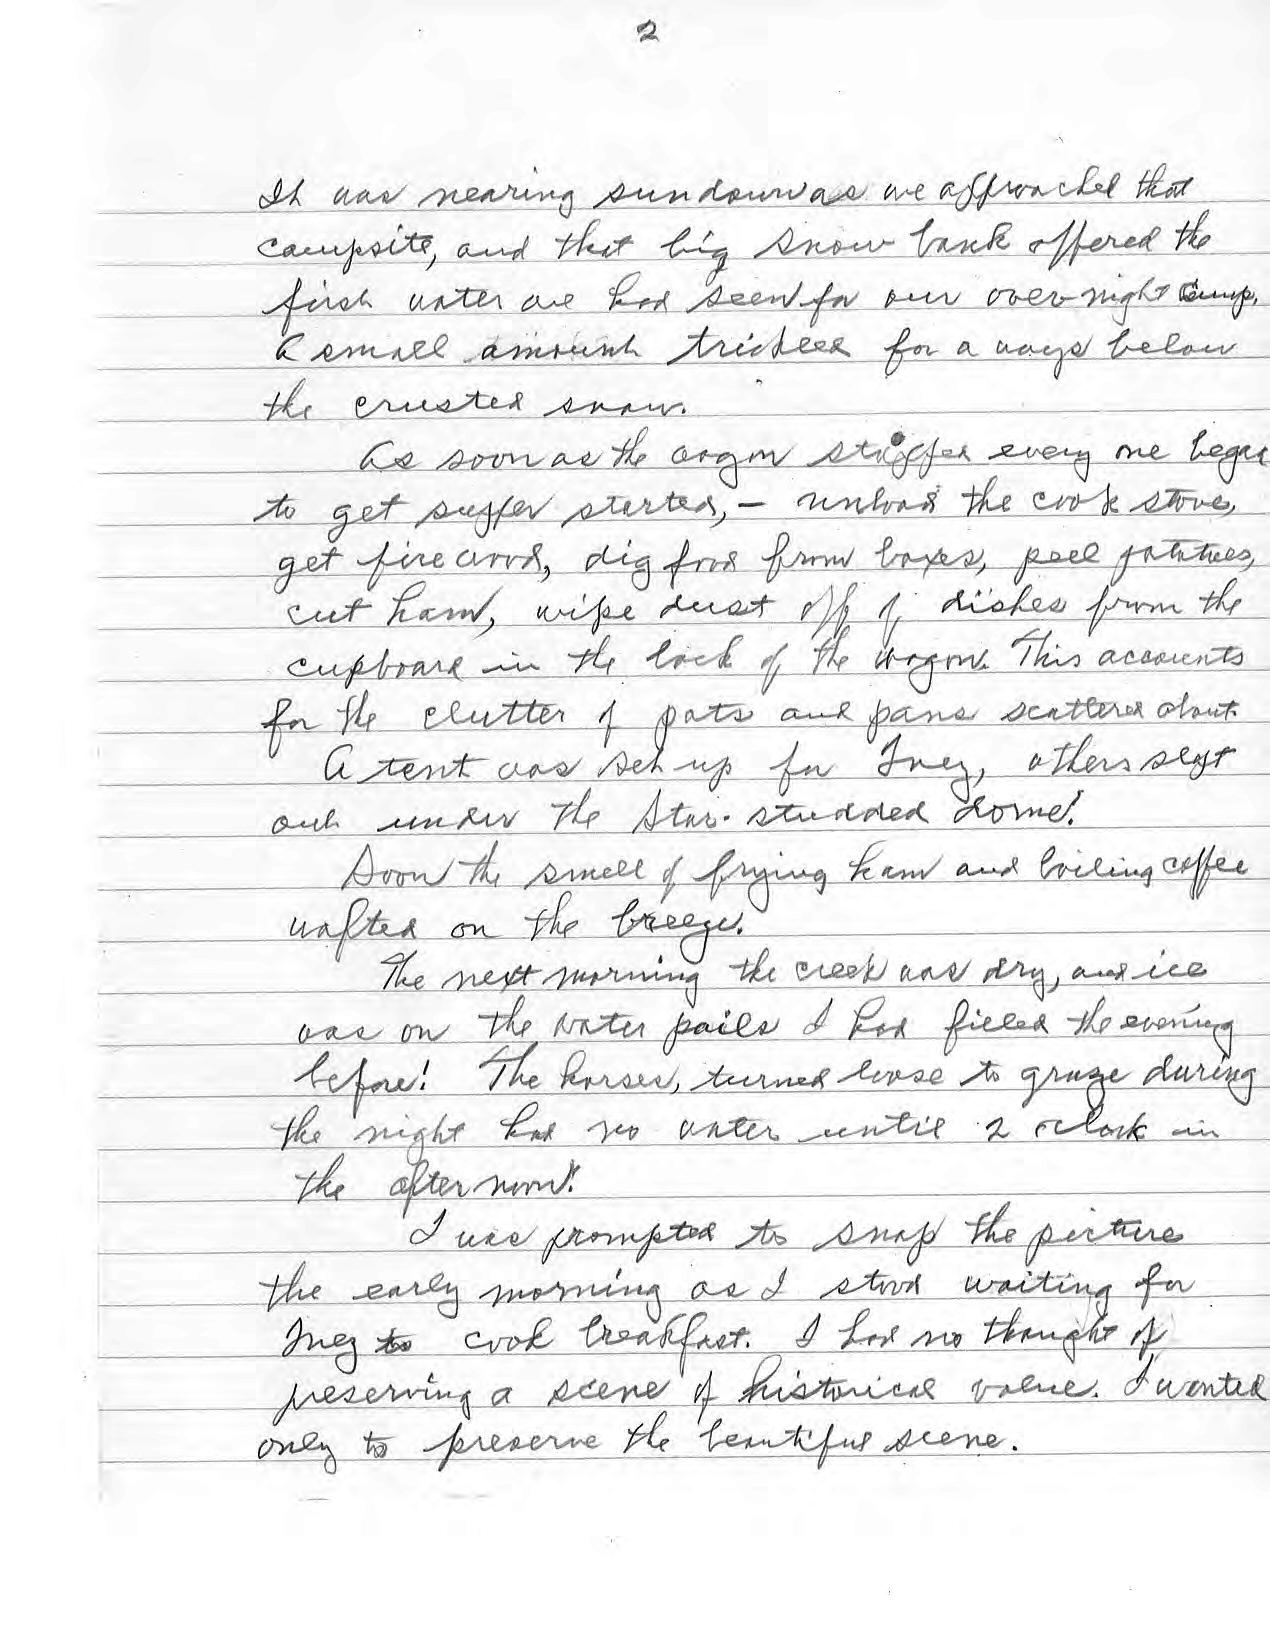 2
It was nearing sundown as we approached that
campsite, and that big snow bank offered the
first water we had seen for our over-night camp.
A small amount trickled for a ways below
the crusted snow.
As soon as the wagon stopped every one began
to get supper started, - unload the cook stove,
get fire wood, dig food from boxes, peel potatoes,
cut ham, wipe dust off of dishes from the
cupboard in the back of the wagon. This accounts
for the clutter of pots and pans scattered about.
A tent was set up for Inez, others slept
out under the star-studded dome!
Soon the smell of frying ham and boiling coffee
wafted on the breeze.
The next morning the creek was dry, and ice
was on the water pails I had filled the evening
before! The horses, turned loose to graze during
the night had no water until 2 oclock in
the afternoon!
I was prompted to snap the picture
the early morning as I stood waiting for
Inez to cook breakfast. I had no thought of
preserving a scene of historical value. I wanted
only to preserve the beautiful scene.